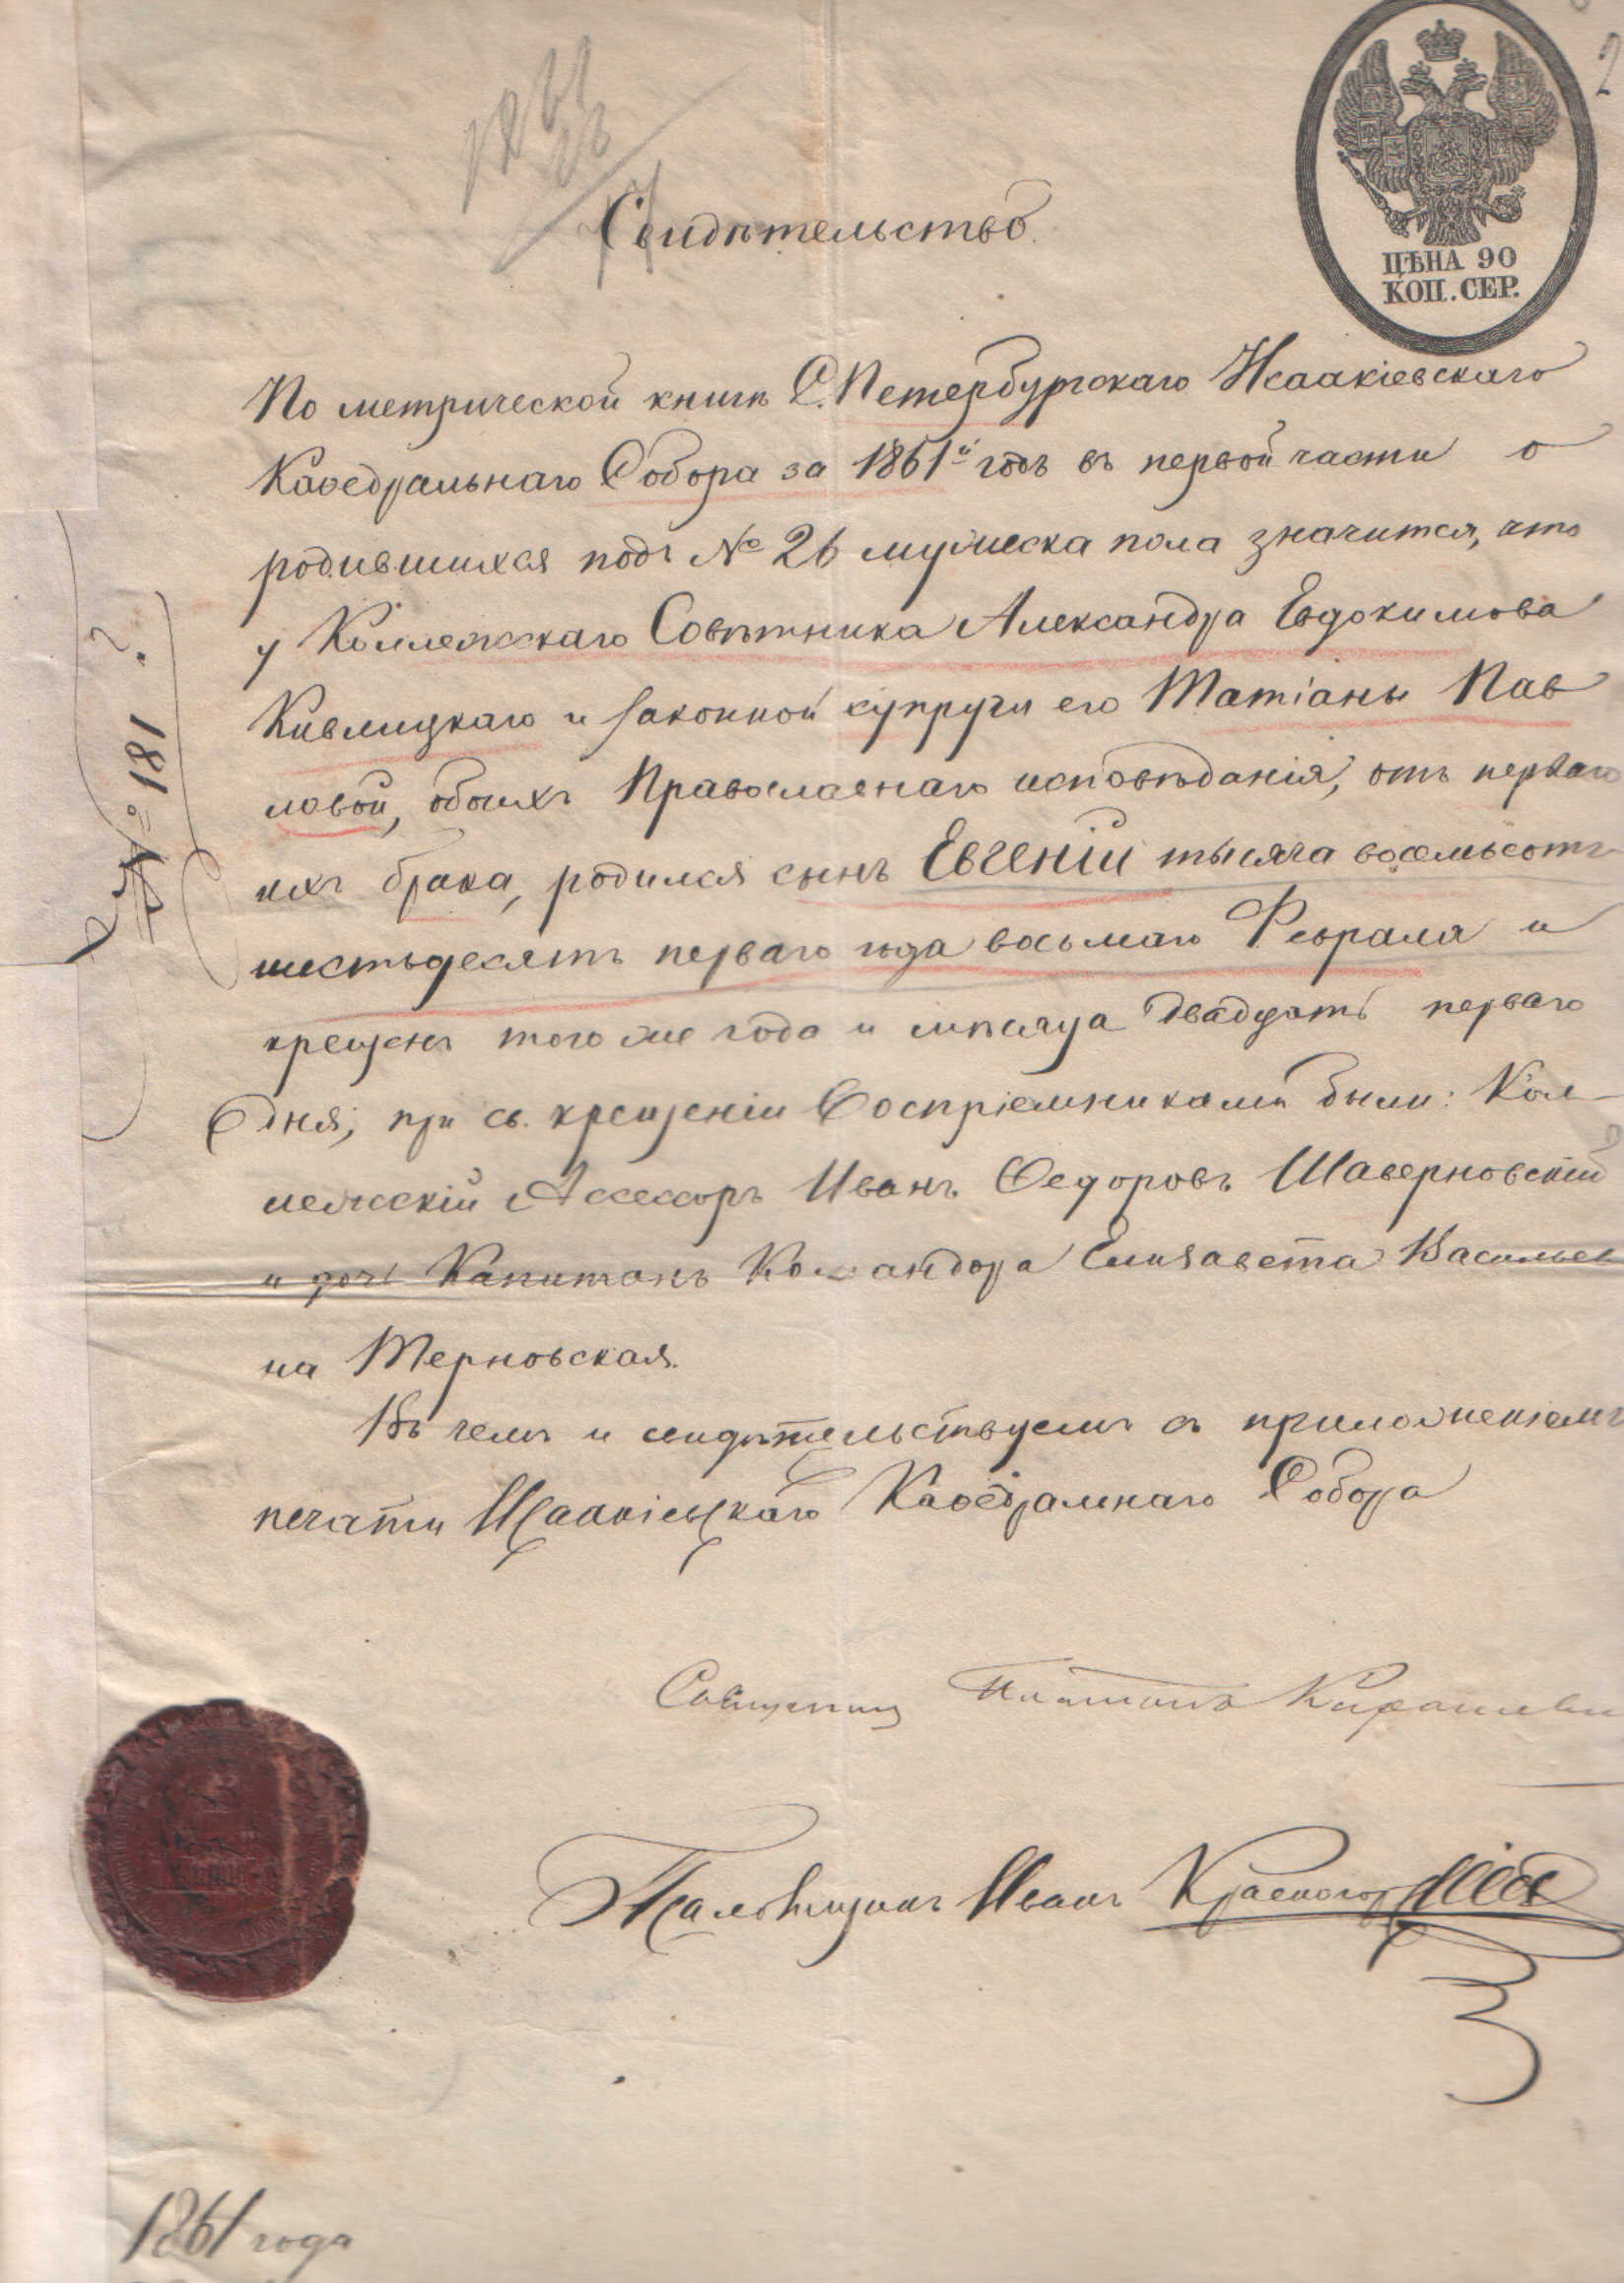 2
Свидѣтельство.
ЦѢНА 90
КОП. СЕР.
По метрической книгѣ С.Петербургскаго Исаакіевскаго
Каѳедральнаго Собора за 1861й годъ въ первой части о
родившихся подъ № 26 мужеска пола значится, что
у Коллежскаго Совѣтника Александра Евдокимова
Кивлицкаго и законной супруги его Татіаны Пав
ловой, обоихъ Православнаго исповѣданія, отъ перваго
ихъ брака, родился сынъ Евгеній тысяча восемьсотъ
шестьдесятъ перваго года восьмаго Февраля и
крещенъ того же года и мѣсяца двадцать перваго
дня; при св. крещеніи Воспріемниками были: Кол-
лежскій Ассесоръ Иванъ Ѳедоровъ Шаверновскій
и дочь Капитанъ Командора Елизавета Васильев
на Терновская.
Въ чемъ и свидѣтельствуемъ съ приложеніемъ
печати Исаакіевскаго Каѳедральнаго Собора
№ 181
Священникъ Платонъ
Псаломщикъ Иванъ
1861 года